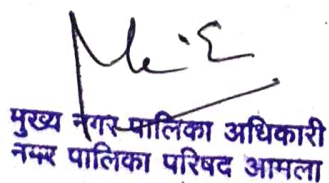 मुख्य नगर पालिका अधिकारी
नगर पालिका परिषद आमला